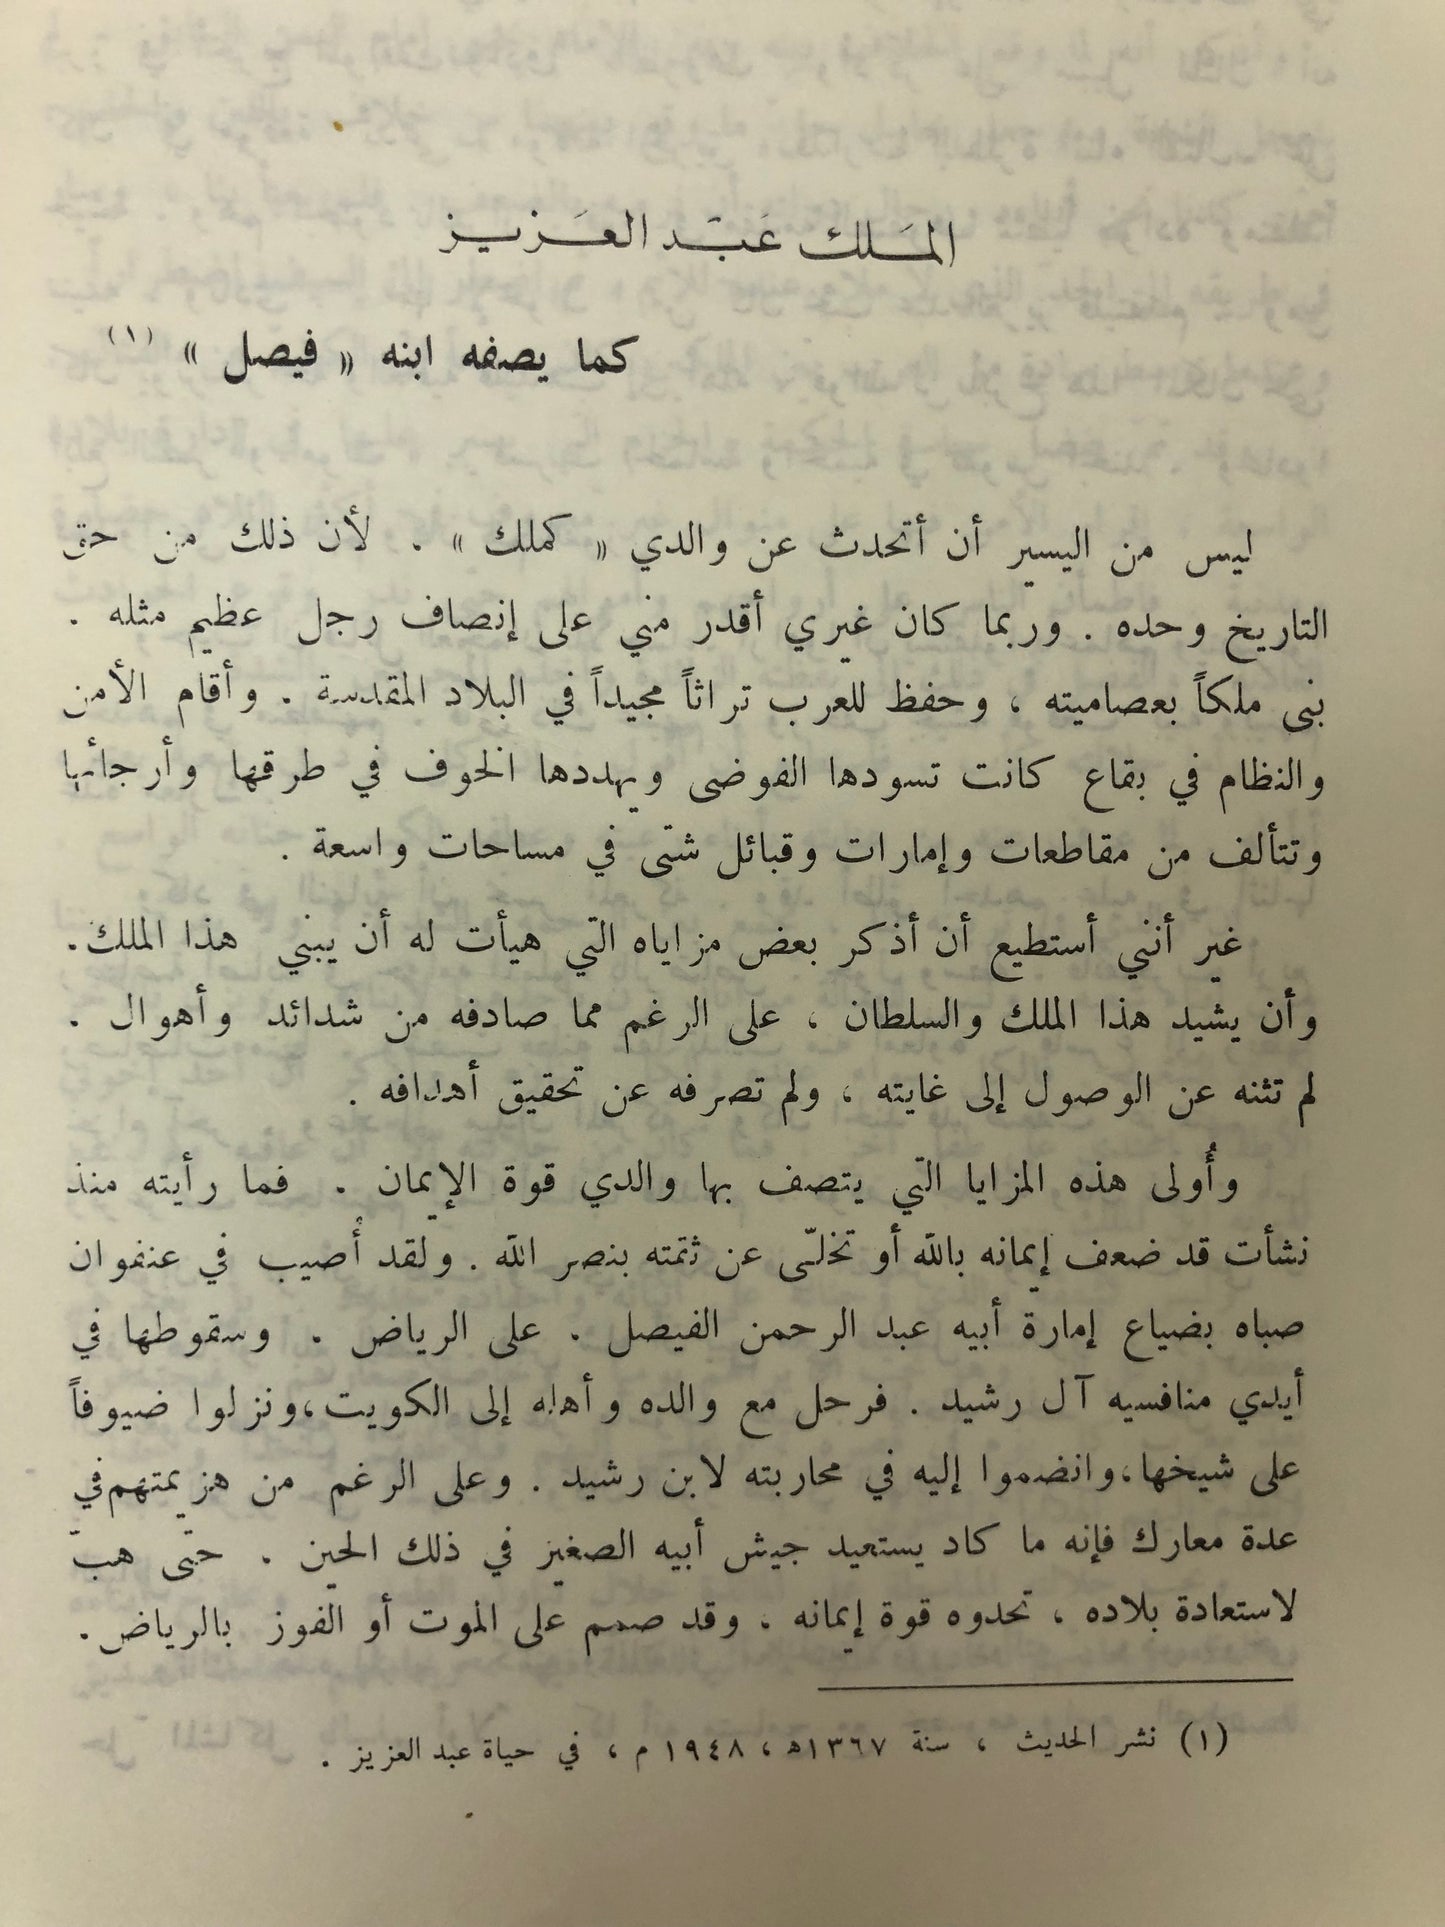 الملك عبد العزيز
كما يصفه ابنه « فيصل » (١)
ليس من اليسير أن أتحدث عن والدي « كملك » . لأن ذلك من حق
التاريخ وحده . وربما كان غيري أقدر مني على إنصاف رجل عظيم مثله .
بنى ملكاً بعصاميته ، وحفظ للعرب تراثاً مجيداً في البلاد المقدسة . وأقام الأمن
والنظام في بقاع كانت تسودها الفوضى ويهددها الخوف في طرقها وأرجائها
وتتألف من مقاطعات وإمارات وقبائل شتى في مساحات واسعة .
غير أنني أستطيع أن أذكر بعض مزاياه التي هيأت له أن يبني هذا الملك .
وأن يشيد هذا الملك والسلطان ، على الرغم مما صادفه من شدائد وأهوال .
لم تثنه عن الوصول إلى غايته ، ولم تصرفه عن تحقيق أهدافه .
وأُولى هذه المزايا التي يتصف بها والدي قوة الإيمان . فما رأيته منذ
نشأت قد ضعف إيمانه بالله أو تخلّى عن ثقته بنصر الله . ولقد أُصيب في عنفوان
صباه بضياع إمارة أبيه عبد الرحمن الفيصل . على الرياض . وسقوطها في
أيدي منافسيه آل رشيد . فرحل مع والده وأهله إلى الكويت،ونزلوا ضيوفاً
على شيخها،وانضموا إليه في محاربته لابن رشيد . وعلى الرغم من هزيمتهم في
عدة معارك فإنه ما كاد يستعيد جيش أبيه الصغير في ذلك الحين . حتى هبّ
لاستعادة بلاده ، تحدوه قوة إيمانه . وقد صمم على الموت أو الفوز بالرياض.
(١) نشر الحديث ، سنة ١٣٦٧ه ، ١٩٤٨ م ، في حياة عبد العزيز .